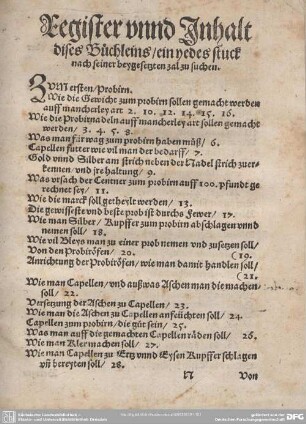 Register vnnd Inhalt
dises Büchleins / ein yedes stuck
nach seiner beygesetzten zal zu suchen.
ZVM ersten / Probirn.
Wie die Gewicht zum probirn sollen gemacht werden
auff mancherley art 2. 10. 12. 14. 15. 16.
Wie die Probirnadeln auff mancherley art sollen gemacht
werden / 3. 4. 5. 8.
Was man für wag zum probirn haben müß / 6
Capellen fuiter wie vil man der bedarff / 7.
Gold vnnd Silber am strich neben der Nadel strich zuer-
kennen vnd jre haltung / 9.
Was vrsach der Centner zum probirn auff 100. pfundt ge
rechnet sey / 11.
Wie die marck soll getheylt werden / 13.
Die gewisseste vnd beste prob ist durchs Fewer / 17.
Wie man Silber / Kupffer zum probirn abschlagen vnnd
nemen soll / 18.
Wie vil Bleys man zu einer prob nemen vnd zusetzen soll /
Von den Probiröfen / 20. (19.
Anrichtung der Probiröfen / wie man damit handlen soll /
(21.
Wie man Capellen / vnd außwas Aschen man die machen
soll / 22.
Versetzung der Aschen zu Capellen / 23.
Wie man die Aschen zu Capellen anfeüchten soll / 24.
Capellen zum probirn / die güt sein / 25.
Was man auff die gemachten Capellen thun soll / 26.
Wie man Kler machen soll / 27.
Wie man Capellen zu Ertz vnnd Eysen Kupffer schlagen
vñ bereyten soll / 28.
N Von